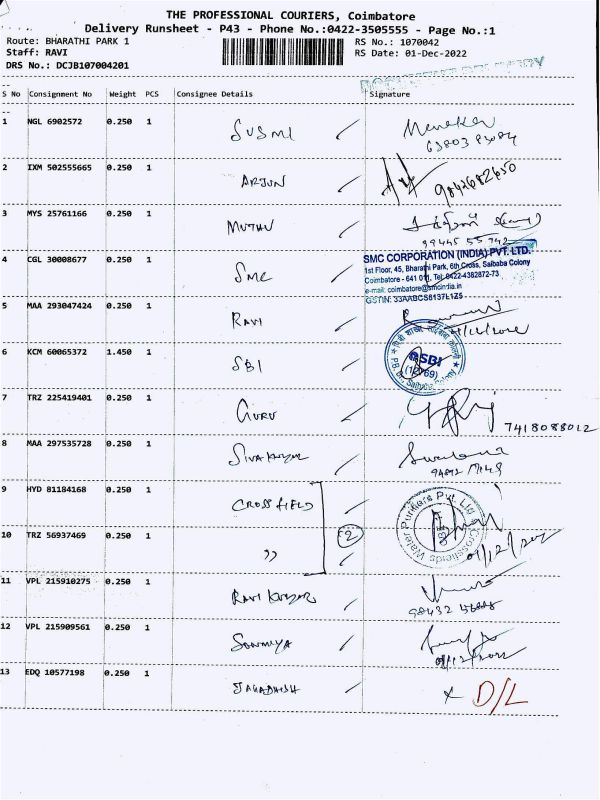 THE PROFESSIONAL COURIERS, Coimbatore
Delivery Runsheet - P43 - Phone No.:0422-3505555 - Page No.:1
Route: BHARATHI PARK 1 RS No.: 1070042
Staff: RAVI RS Date: 01-Dec-2022
DRS No.: DCJB107004201
S No Consignment No Weight PCS Consignee Details Signature
1 NGL 6902572 0.250 1 SUSMI
2 IXM 502555665 0.250 1 ARJUN 9842682650
3 MYS 25761166 0.250 1 MUTHU
99445 55 742
4 CGL 30008677 0.250 1 SMC
SMC CORPORATION (INDIA) PVT. LTD.
1st Floor, 45, Bharathi Park, 6th Cross, Saibaba Colony
Coimbatore - 641 011, Tel: 0422-4382872-73
e-mail: coimbatore@smcindia.in
GSTIN: 33AABCS8137L1Z5
5 MAA 293047424 0.250 1 RAVI
6 KCM 60065372 1.450 1 SBI
SBI
7 TRZ 225419401 0.250 1 GURU 7418088012
8 MAA 297535728 0.250 1 SIVAKUMAR
9 HYD 81184168 0.250 1 CROSSFIELD
Crossfields Water Purifiers Pvt. Ltd
10 TRZ 56937469 0.250 1 〃 2
11 VPL 215910275 0.250 1 RAVI KUMAR
12 VPL 215909561 0.250 1 SOWMIYA
01/12/2022
13 EDQ 10577198 0.250 1 JAGADHISH x D/L